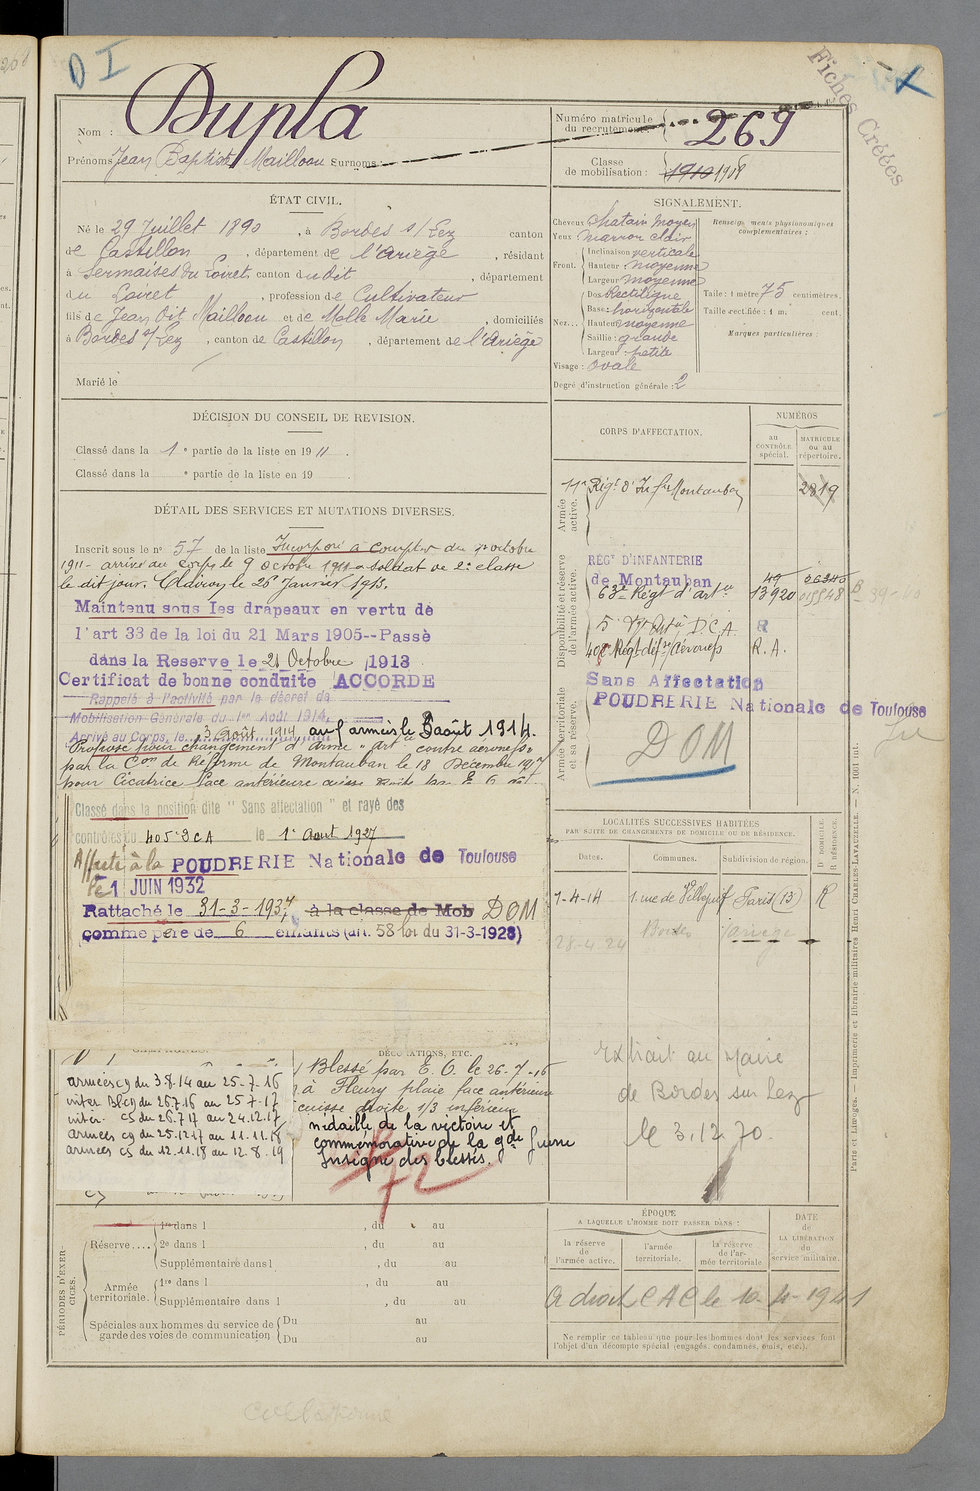 D I
Fiches Créées
Nom : Dupla
Prénoms Jean Baptiste Mailloou Surnoms :
Numéro matricule du recrutement 269
Classe de mobilisation : 1910 1908
ÉTAT CIVIL.
Né le 29 Juillet 1890, à Bordes s/ Lez canton
de Castillon, département de l'Ariège, résidant
à Sermaises du Loiret, canton du dit, département
du Loiret, profession de Cultivateur
fils de Jean dit Mailloou et de Malle Marie, domiciliés
à Bordes s/ Lez, canton de Castillon, département de l'Ariège
Marié le
SIGNALEMENT.
Cheveux chatain moyen
Yeux marron clair
Front. Inclinaison verticale
Hauteur moyenne
Largeur moyenne
Nez... Dos Rectiligne
Base: horizontale
Hauteur moyenne
Saillie : grande
Largeur : petite
Visage : ovale
Degré d'instruction générale : 2
Renseignements physionomiques complémentaires :
Taille : 1 mètre 75 centimètres.
Taille rectifiée : 1 m. cent.
Marques particulières
DÉCISION DU CONSEIL DE REVISION.
Classé dans la 1e partie de la liste en 1911.
Classé dans la e partie de la liste en 19
DÉTAIL DES SERVICES ET MUTATIONS DIVERSES.
Inscrit sous le n° 57 de la liste Incorporé à compter du 1er octobre
1911 - arrivé au corps le 9 octobre 1911 - soldat de 2e classe
le dit jour. Clairon le 26 Janvier 1913.
Maintenu sous les drapeaux en vertu de
l'art 33 de la loi du 21 Mars 1905--Passé
dans la Reserve le 21 Octobre 1913
Certificat de bonne conduite ACCORDE
Rappelé à l'activité par le décret de
Mobilisation Générale du 1er Août 1914,
Arrivé au Corps, le 3 août 1914 aux armées le 3 août 1914.
Proposé pour changement d'arme "Art. contre aéronefs"
par la Con de Réforme de Montauban le 18 Décembre 1917
pour Cicatrice face antérieure cuisse droite
Classé dans la position dite "Sans affectation" et rayé des
contrôles du 405e DCA le 1er Aout 1927
Affecté à la POUDRERIE Nationale de Toulouse
le 1 JUIN 1932
Rattaché le 31-3-1937 à la classe de Mob DOM
comme père de 6 enfants (art. 58 loi du 31-3-1928)
CORPS D'AFFECTATION.
NUMÉROS
au CONTRÔLE spécial.
MATRICULE ou au répertoire.
Armée active.
11e Régt d'Infie Montauban 2819
Disponibilité et réserve de l'armée active.
RÉGT D'INFANTERIE
de Montauban
63e Régt d'Artie 13920 015548
R
R. A.
Armée territoriale et sa réserve.
Sans Affectation
POUDRERIE Nationale de Toulouse
DOM
LOCALITÉS SUCCESSIVES HABITÉES
PAR SUITE DE CHANGEMENTS DE DOMICILE OU DE RÉSIDENCE.
Dates. Communes. Subdivision de région. D. DOMICILE. R. RÉSIDENCE.
7-4-14 1. rue de Villejuif Paris (13) R
28-4-24 Bordes Ariège
Extrait au Maire
de Bordes sur Lez
le 3.12.70.
DÉCORATIONS, ETC.
armées cg du 3.8.14 au 25-7-16
inter Blcg du 26.7.16 au 25-7-17
inter. cs du 26.7.17 au 24.12.17
armées cg du 25.12.17 au 11.11.18
armées cs du 12.11.18 au 12.8.19
Blessé par E. O. le 26-7-16
à Fleury plaie face antérieure
cuisse droite 1/3 inférieur
médaille de la victoire et
commémorative de la gde guerre
Insigne des blessés.
72
PÉRIODES D'EXERCICES.
Réserve.... 1re dans l , du au
2e dans l , du au
Supplémentaire dans l , du au
Armée territoriale. 1re dans l , du au
Supplémentaire dans l , du au
Spéciales aux hommes du service de garde des voies de communication Du au
Du au
ÉPOQUE
A LAQUELLE L'HOMME DOIT PASSER DANS :
la réserve de l'armée active.
l'armée territoriale.
la réserve de l'armée territoriale
DATE de LA LIBÉRATION du service militaire.
A droit CAC le 10-4-1941
Ne remplir ce tableau que pour les hommes dont les services font
l'objet d'un décompte spécial (engagés, condamnés, omis, etc.).
Paris et Limoges. — Imprimerie et librairie militaires Henri CHARLES-LAVAUZELLE. — N. 1001 int.